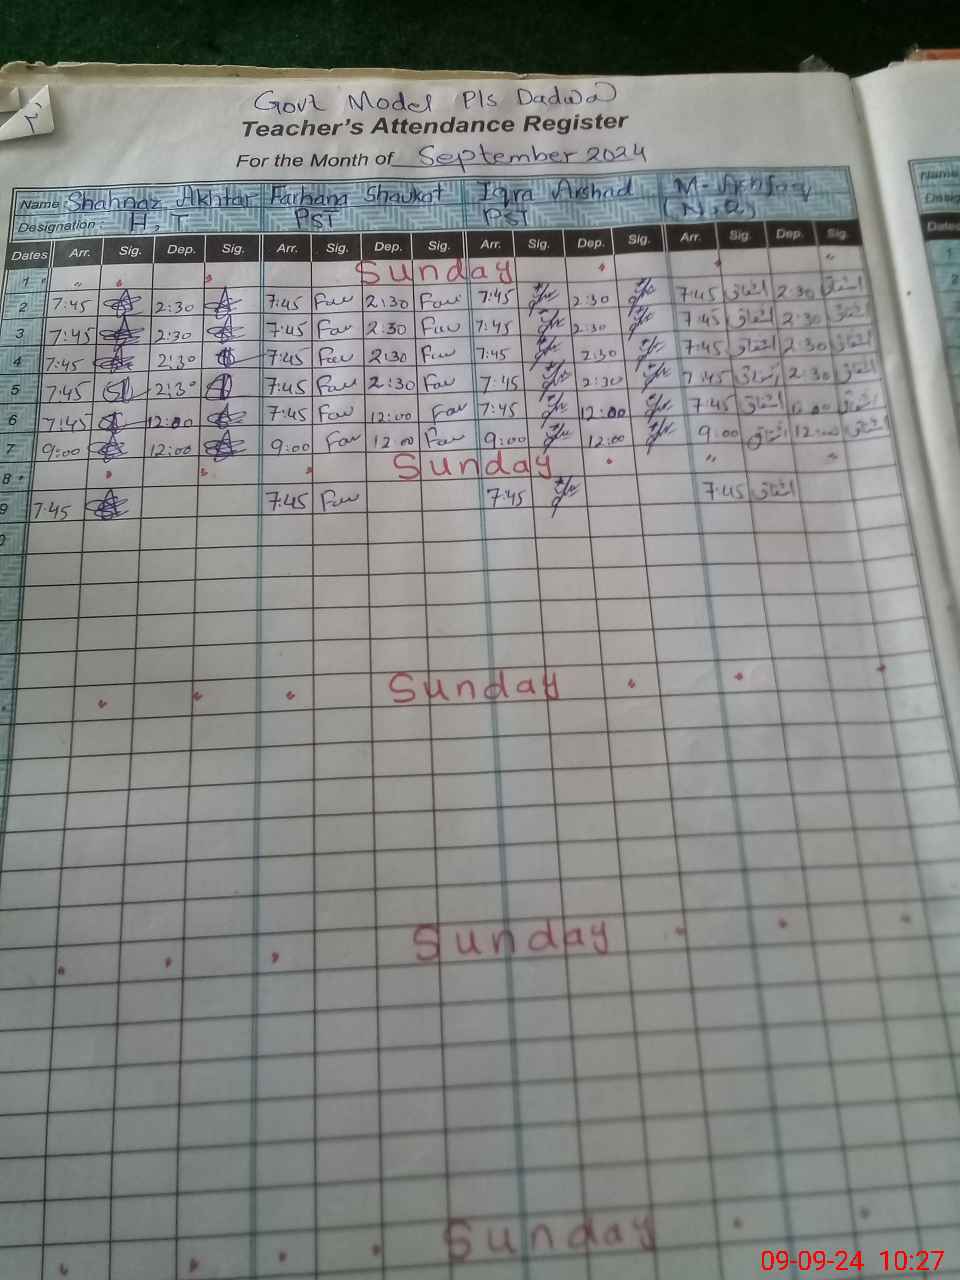 Govt Model P/s Dadwa
Teacher's Attendance Register
For the Month of September 2024
Name: Shahnaz Akhtar Farhana Shaukat Iqra Arshad M- Ashfaq Name
Designation: H, T PST PST (N,Q) Desig
Dates Arr. Sig. Dep. Sig. Arr. Sig. Dep. Sig. Arr. Sig. Dep. Sig. Arr. Sig. Dep. Sig. Dates
1 Sunday 1
2 7:45 2:30 7:45 Far 2:30 Far 7:45 2:30 7:45 اشفاق 2:30 اشفاق 2
3 7:45 2:30 7:45 Far 2:30 Far 7:45 2:30 7:45 اشفاق 2:30 اشفاق
4 7:45 2:30 7:45 Far 2:30 Far 7:45 2:30 7:45 اشفاق 2:30 اشفاق
5 7:45 2:30 7:45 Far 2:30 Far 7:45 2:30 7:45 اشفاق 2:30 اشفاق
6 7:45 12:00 7:45 Far 12:00 Far 7:45 12:00 7:45 اشفاق 12:00 اشفاق
7 9:00 12:00 9:00 Far 12:00 Far 9:00 12:00 9:00 اشفاق 12:00 اشفاق
8 Sunday
9 7:45 7:45 Far 7:45 7:45 اشفاق
Sunday
Sunday
Sunday
09-09-24 10:27